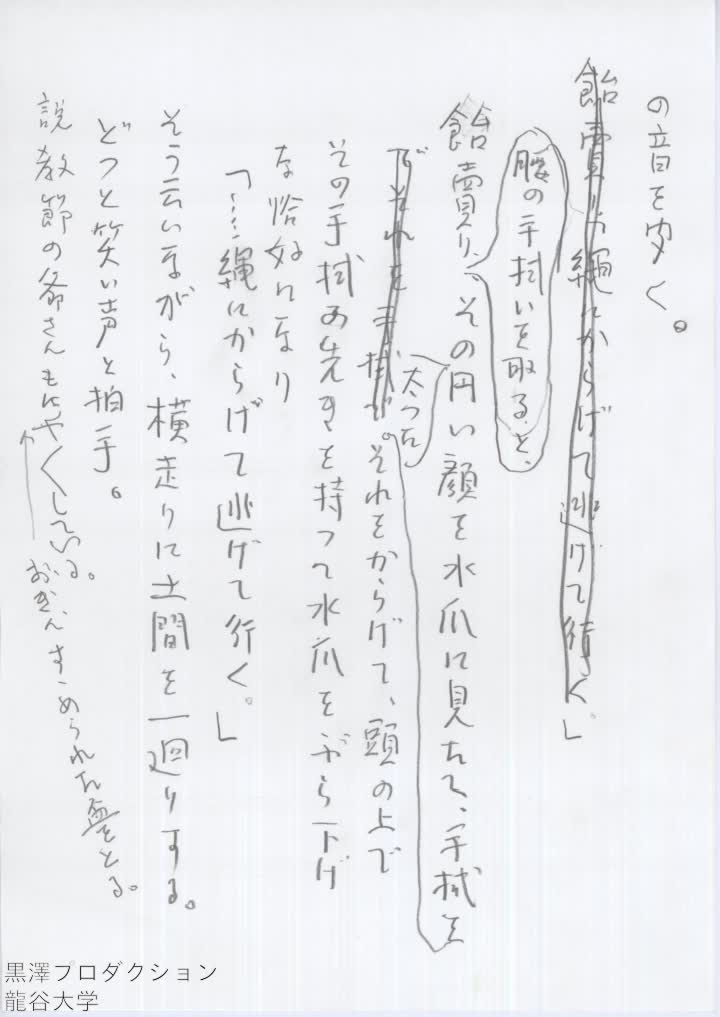 の音を聞く。
飴賣り「縄にからげて逃げて行く。」
腰の手拭いを取ると、
飴賣り、その円い顔を水瓜に見たて、手拭を
太つた
でそれを手拭で。それをからげて、頭の上で
その手拭の先きを持つて水瓜をぶら下げ
な恰好になり
「……縄にからげて逃げて行く。」
そう云いながら、横走りに土間を一廻りする。
どつと笑い声と拍手。
説教節の爺さんもにやくしている。
おぎん、すゝめられた盃をとる。
黒澤プロダクション
龍谷大学